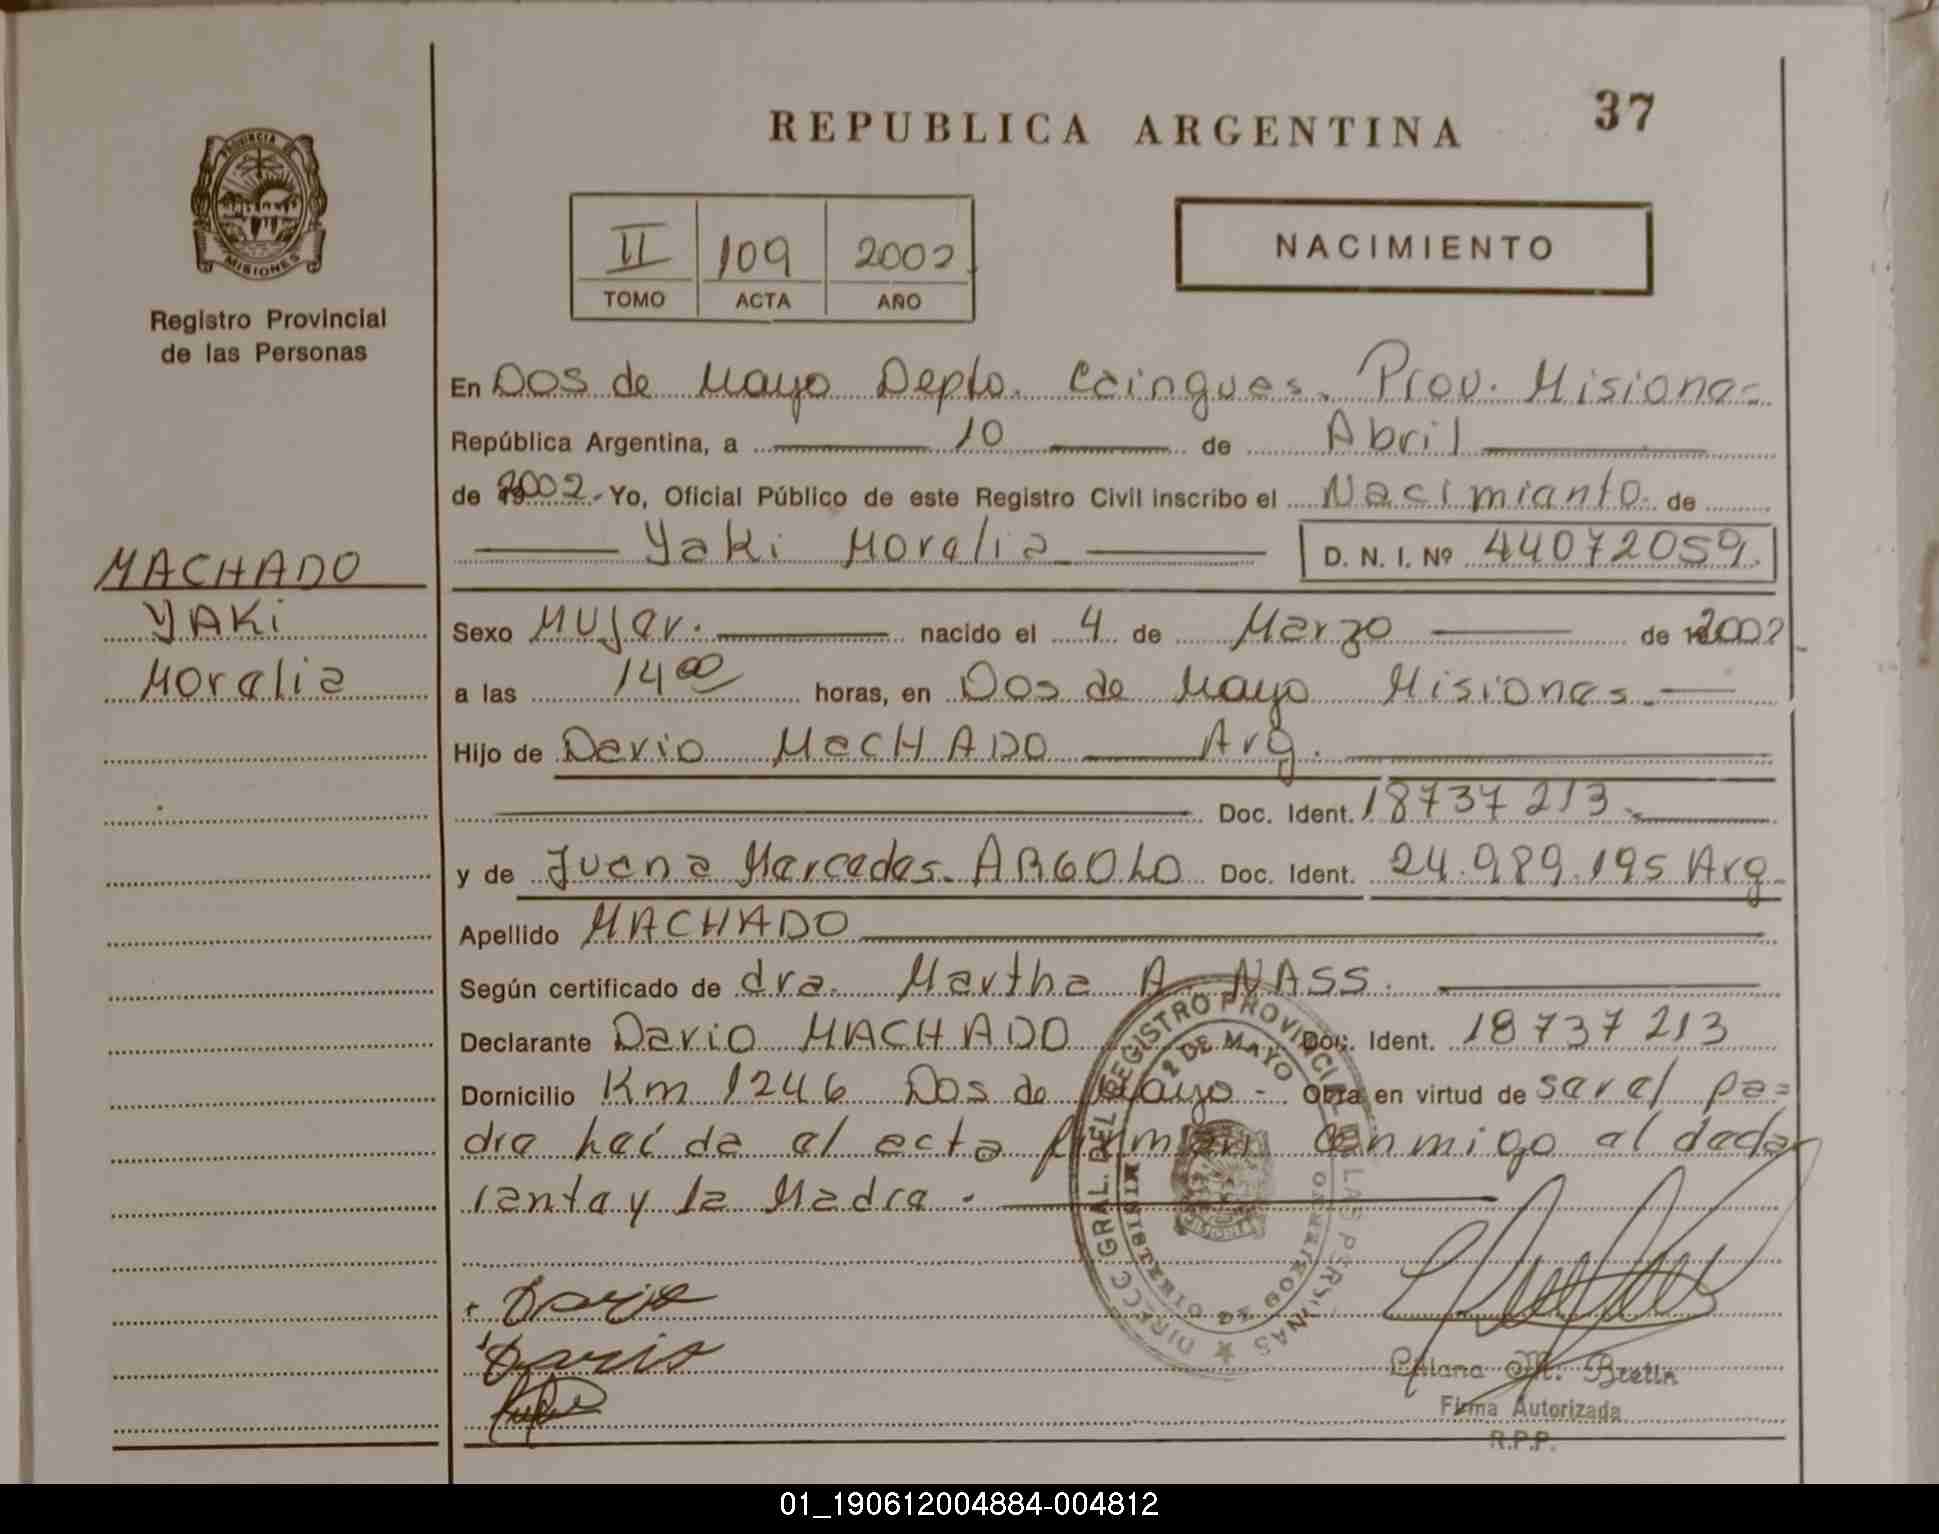 REPUBLICA ARGENTINA
37
PROVINCIA D
MISIONES
Registro Provincial
de las Personas
II 109 2002
TOMO ACTA AÑO
NACIMIENTO
En Dos de Mayo Depto. Caingues. Prov. Misiones
República Argentina, a 10 de Abril
de 2002. Yo, Oficial Público de este Registro Civil inscribo el Nacimianto de
Yaki Moralia D. N. I. Nº 44072059.
MACHADO
YAKi
Moralia
Sexo Mujer. nacido el 4 de Marzo de 2002
a las 14 00 horas, en Dos de Mayo Misiones.
Hijo de Dario MacHADO Arg.
Doc. Ident. 18737213.
y de Juana Marcedes. ARGOLO Doc. Ident. 24.989.195 Arg.
Apellido MACHADO
Según certificado de dra. Martha A. NASS.
Declarante Dario MACHADO Doc. Ident. 18737213
Domicilio Km 1246 Dos de Mayo - Obra en virtud de sar el pa=
dre haí da el acta firman conmigo el decla
ranta y la Madra.
DIRECC GRAL. DEL REGISTRO PROVINCIAL DE LAS PERSONAS
2 DE MAYO
MINISTERIO DE GOBIERNO
Dario
Dario
Liliana M. Bretin
Firma Autorizada
R.P.P.
01_190612004884-004812